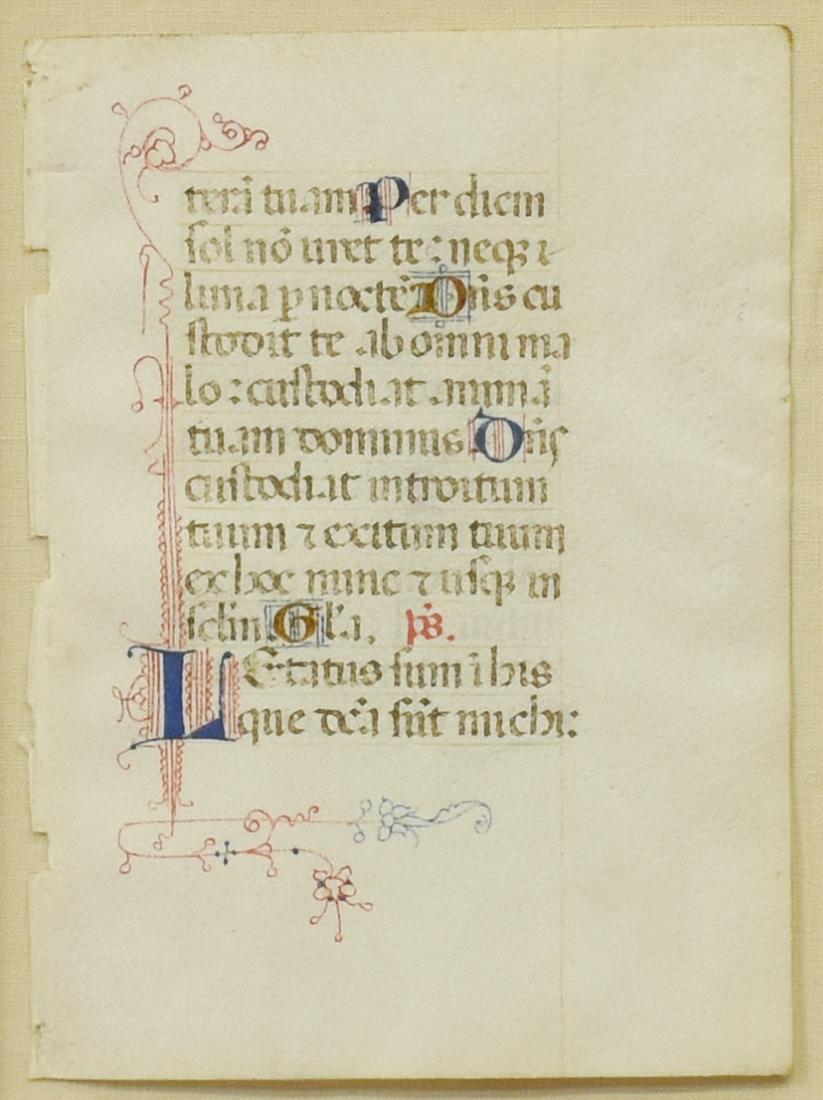 terā tuam Per diem
sol nō uret te: neqꝫ
luna ꝑ noctē Dn̄s cu
stodit te ab omni ma
lo: custodiat animā
tuam dominus Dn̄s
custodiat introitum
tuum ⁊ exitum tuum
ex hoc nunc ⁊ usqꝫ in
sclm̄ Gl'a. ps̄.
LEtatus sum ī his
que dc̄a sūt michi: